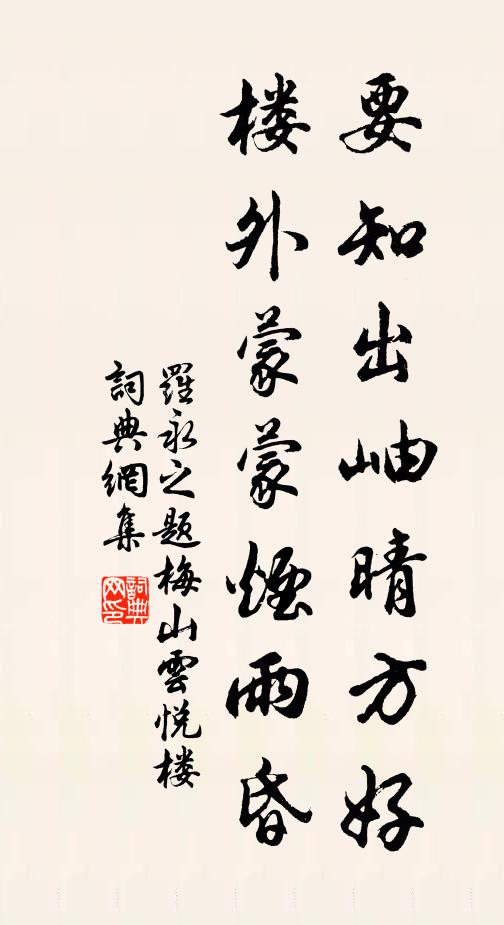 要知出岫晴方好
楼外蒙蒙煙雨昏
羅永之题梅山雲悦楼
詞典網集
詞典
网印